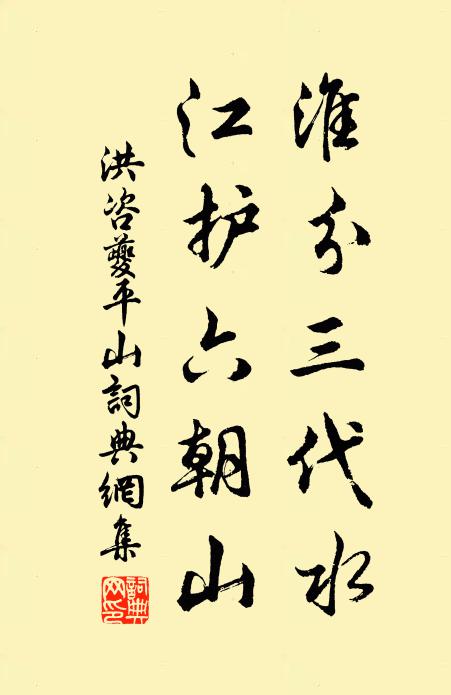 淮分三代水
江护六朝山
洪咨夔平山詞典網集
詞典网印